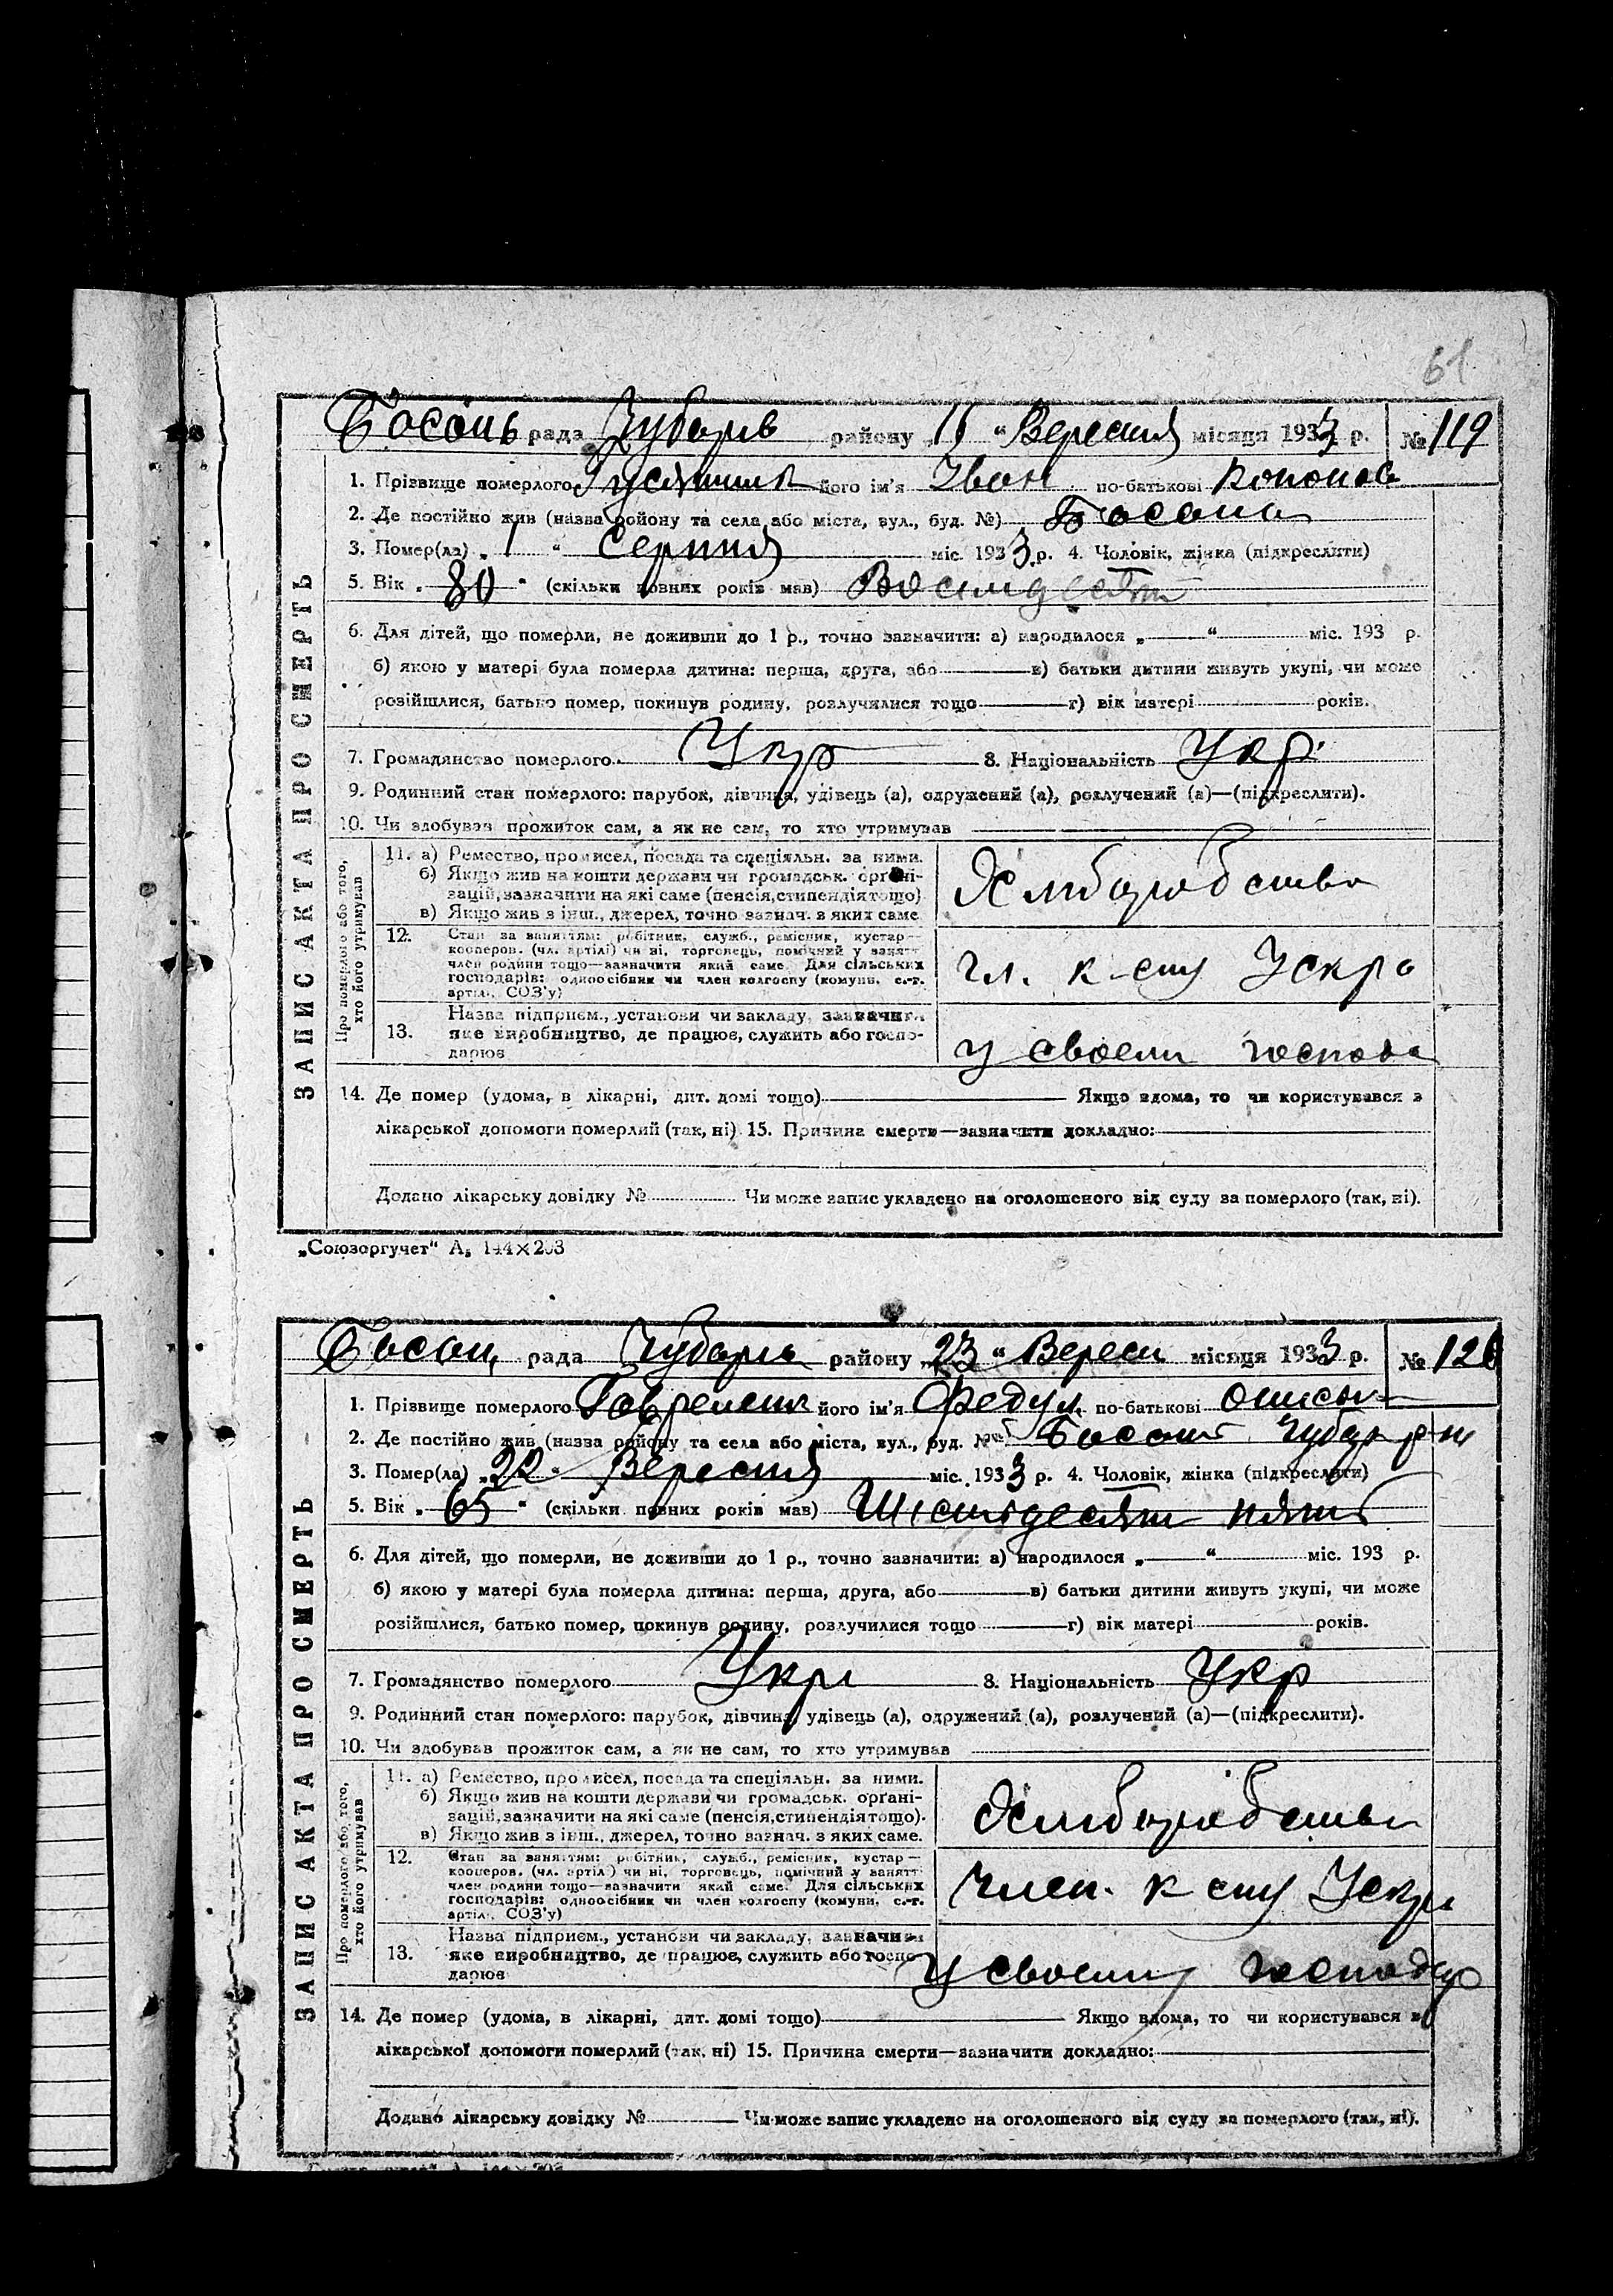 61
Босань рада Чубарів району „ “ Вересня місяця 1933 р. № 119
1. Прізвище померлого його ім'я Іван по-батькові Кононов
2. Де постійно жив (назва ройону та села або міста, вул., буд. №) Босань
3. Помер(ла) „ 1 “ Серпня міс. 1933 р. 4. Чоловік, жінка (підкреслити)
5. Вік „ 80 “ (скільки повних років мав) Восімдесят
6. Для дітей, що померли, не доживши до 1 р., точно зазначити: а) народилося „ “ міс. 193 р.
б) якою у матері була померла дитина: перша, друга, або в) батьки дитини живуть укупі, чи може
розійшлися, батько помер, покинув родину, розлучилися тощо г) вік матері років.
7. Громадянство померлого Укр 8. Національність Укр.
9. Родинний стан померлого: парубок, дівчина, удівець (а), одружений (а), розлучений (а)—(підкреслити).
10. Чи здобував прожиток сам, а як не сам, то хто утримував
ЗАПИС АКТА ПРО СМЕРТЬ
Про померлого або того, хто його утримував
11. а) Ремество, промисел, посада та спеціяльн. за ними.
б) Якщо жив на кошти держави чи громадськ. орґані-
зацій, зазначити на які саме (пенсія, стипендія тощо)
в) Якщо жив з інш., джерел, точно зазнач. з яких саме
12. Стан за заняттям: робітник, служб., ремісник, кустар—
кооперов. (чл. артілі) чи ні, торговець, помічний у занятт
член родини тощо—зазначити який саме. Для сільських
господарів: одноосібник чи член колгоспу (комуни, с.-г.
артілі, СОЗ'у)
чл. к-спу Іскра
13. Назва підприєм., установи чи закладу, зазначити
яке виробництво, де працює, служить або госпо-
дарює
у своєм
14. Де помер (удома, в лікарні, дит. домі тощо) Якщо вдома, то чи користувався з
лікарської допомоги померлий (так, ні) 15. Причина смерти—зазначити докладно:
Додано лікарську довідку № Чи може запис укладено на оголошеного від суду за померлого (так, ні).
„Союзоргучет“ А₅ 144×203
Босан, рада Чубарів району „ 23 “ Вересн місяця 1933 р. № 120
1. Прізвище померлого Гавреленк його ім'я Федул по-батькові
2. Де постійно жив (назва ройону та села або міста, вул., буд. № Босань Чубар р-н
3. Помер(ла) „ 22 “ Вересня міс. 1933 р. 4. Чоловік, жінка (підкреслити)
5. Вік „ 65 “ (скільки повних років мав) Шістьдесят пять
6. Для дітей, що померли, не доживши до 1 р., точно зазначити: а) народилося „ “ міс. 193 р.
б) якою у матері була померла дитина: перша, друга, або в) батьки дитини живуть укупі, чи може
розійшлися, батько помер, покинув родину, розлучилися тощо г) вік матері років.
7. Громадянство померлого Укр 8. Національність Укр
9. Родинний стан померлого: парубок, дівчина, удівець (а), одружений (а), розлучений (а)—(підкреслити).
10. Чи здобував прожиток сам, а як не сам, то хто утримував
ЗАПИС АКТА ПРО СМЕРТЬ
Про померлого або того, хто його утримував
11. а) Ремество, промисел, посада та спеціяльн. за ними.
б) Якщо жив на кошти держави чи громадськ. орґані-
зацій, зазначити на які саме (пенсія, стипендія тощо).
в) Якщо жив з інш., джерел, точно зазнач. з яких саме.
12. Стан за заняттям: робітник, служб., ремісник, кустар—
кооперов. (чл. артілі) чи ні, торговець, помічний у занятт
член родини тощо—зазначити який саме. Для сільських
господарів: одноосібник чи член колгоспу (комуни, с.-г.
артілі, СОЗ'у)
член. к спу Іскра
13. Назва підприєм., установи чи закладу, зазначити
яке виробництво, де працює, служить або госпо-
дарює
у своєму
14. Де помер (удома, в лікарні, дит. домі тощо) Якщо вдома, то чи користувався з
лікарської допомоги померлий (так, ні) 15. Причина смерти—зазначити докладно:
Додано лікарську довідку № Чи може запис укладено на оголошеного від суду за померлого (так, ні).